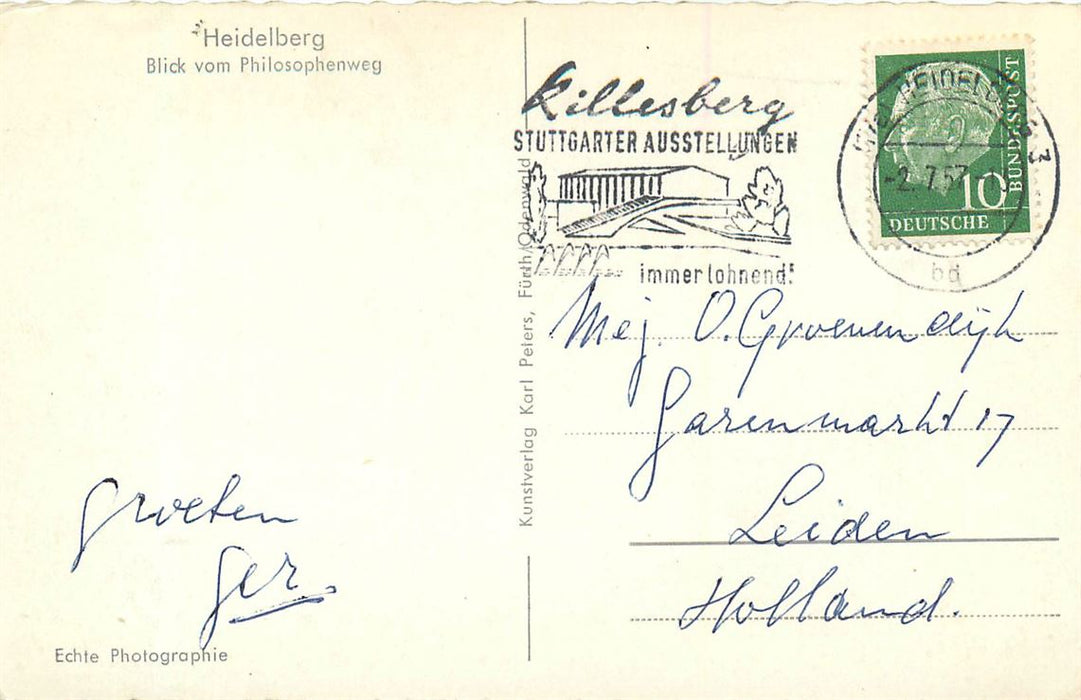 Heidelberg
Blick vom Philosophenweg
groeten
Ger.
Echte Photographie
Kunstverlag Karl Peters, Fürth/Odenwald
Killesberg
STUTTGARTER AUSSTELLUNGEN
immer lohnend!
HEIDELBERG 3
-2.7.57
bd
10
DEUTSCHE
BUNDESPOST
Mej. O. Groenendijk
Garenmarkt 17
Leiden
Holland.